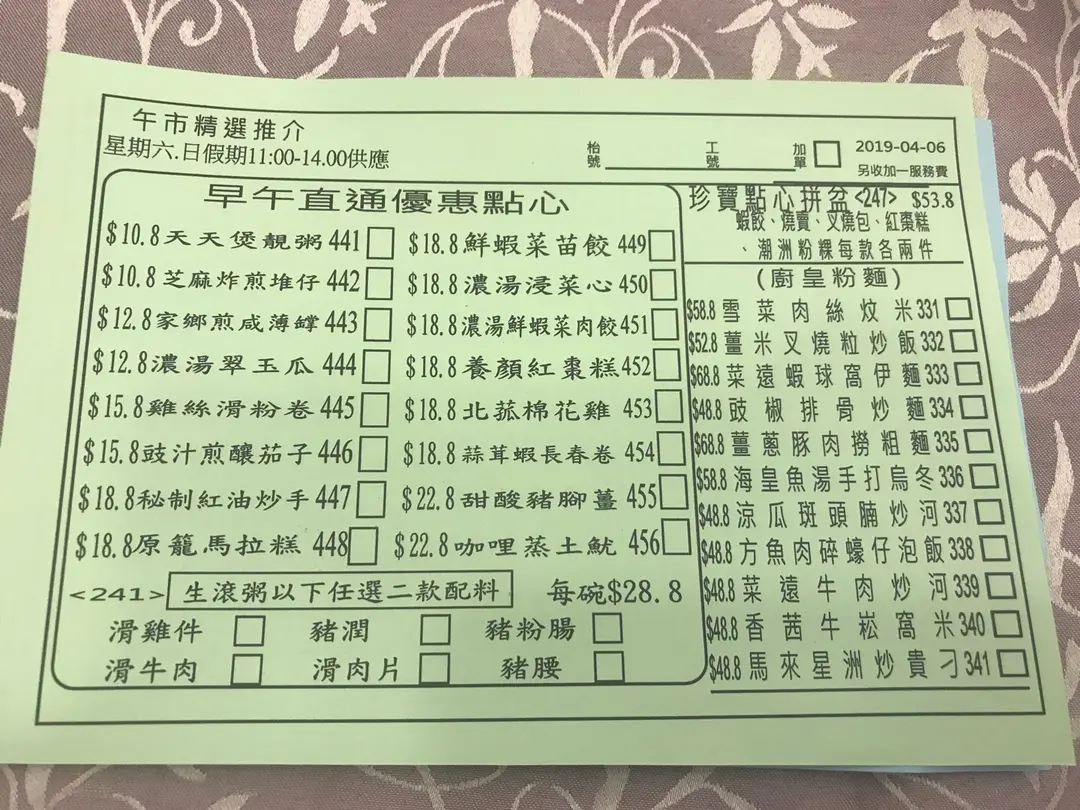 午市精選推介
星期六.日假期11:00-14.00供應
枱號 工號 加單 2019-04-06
另收加一服務費
早午直通優惠點心
$10.8天天煲靚粥 441
$10.8芝麻炸煎堆仔 442
$12.8家鄉煎咸薄罉 443
$12.8濃湯翠玉瓜 444
$15.8雞絲滑粉卷 445
$15.8豉汁煎釀茄子 446
$18.8秘制紅油炒手 447
$18.8原籠馬拉糕 448
$18.8鮮蝦菜苗餃 449
$18.8濃湯浸菜心 450
$18.8濃湯鮮蝦菜肉餃451
$18.8養顏紅棗糕452
$18.8北菰棉花雞 453
$18.8蒜茸蝦長春卷 454
$22.8甜酸豬腳薑 455
$22.8咖哩蒸土魷 456
<241> 生滾粥以下任選二款配料 每碗$28.8
滑雞件 豬潤 豬粉腸
滑牛肉 滑肉片 豬腰
珍寶點心拼盆<247> $53.8
蝦餃、燒賣、叉燒包、紅棗糕
、潮洲粉粿每款各兩件
(廚皇粉麵)
$58.8雪菜肉絲炆米331
$52.8薑米叉燒粒炒飯332
$68.8菜遠蝦球窩伊麵333
$48.8豉椒排骨炒麵334
$68.8薑蔥豚肉撈粗麵335
$58.8海皇魚湯手打烏冬336
$48.8涼瓜斑頭腩炒河337
$48.8方魚肉碎蠔仔泡飯338
$48.8菜遠牛肉炒河339
$48.8香茜牛崧窩米340
$48.8馬來星洲炒貴刁341